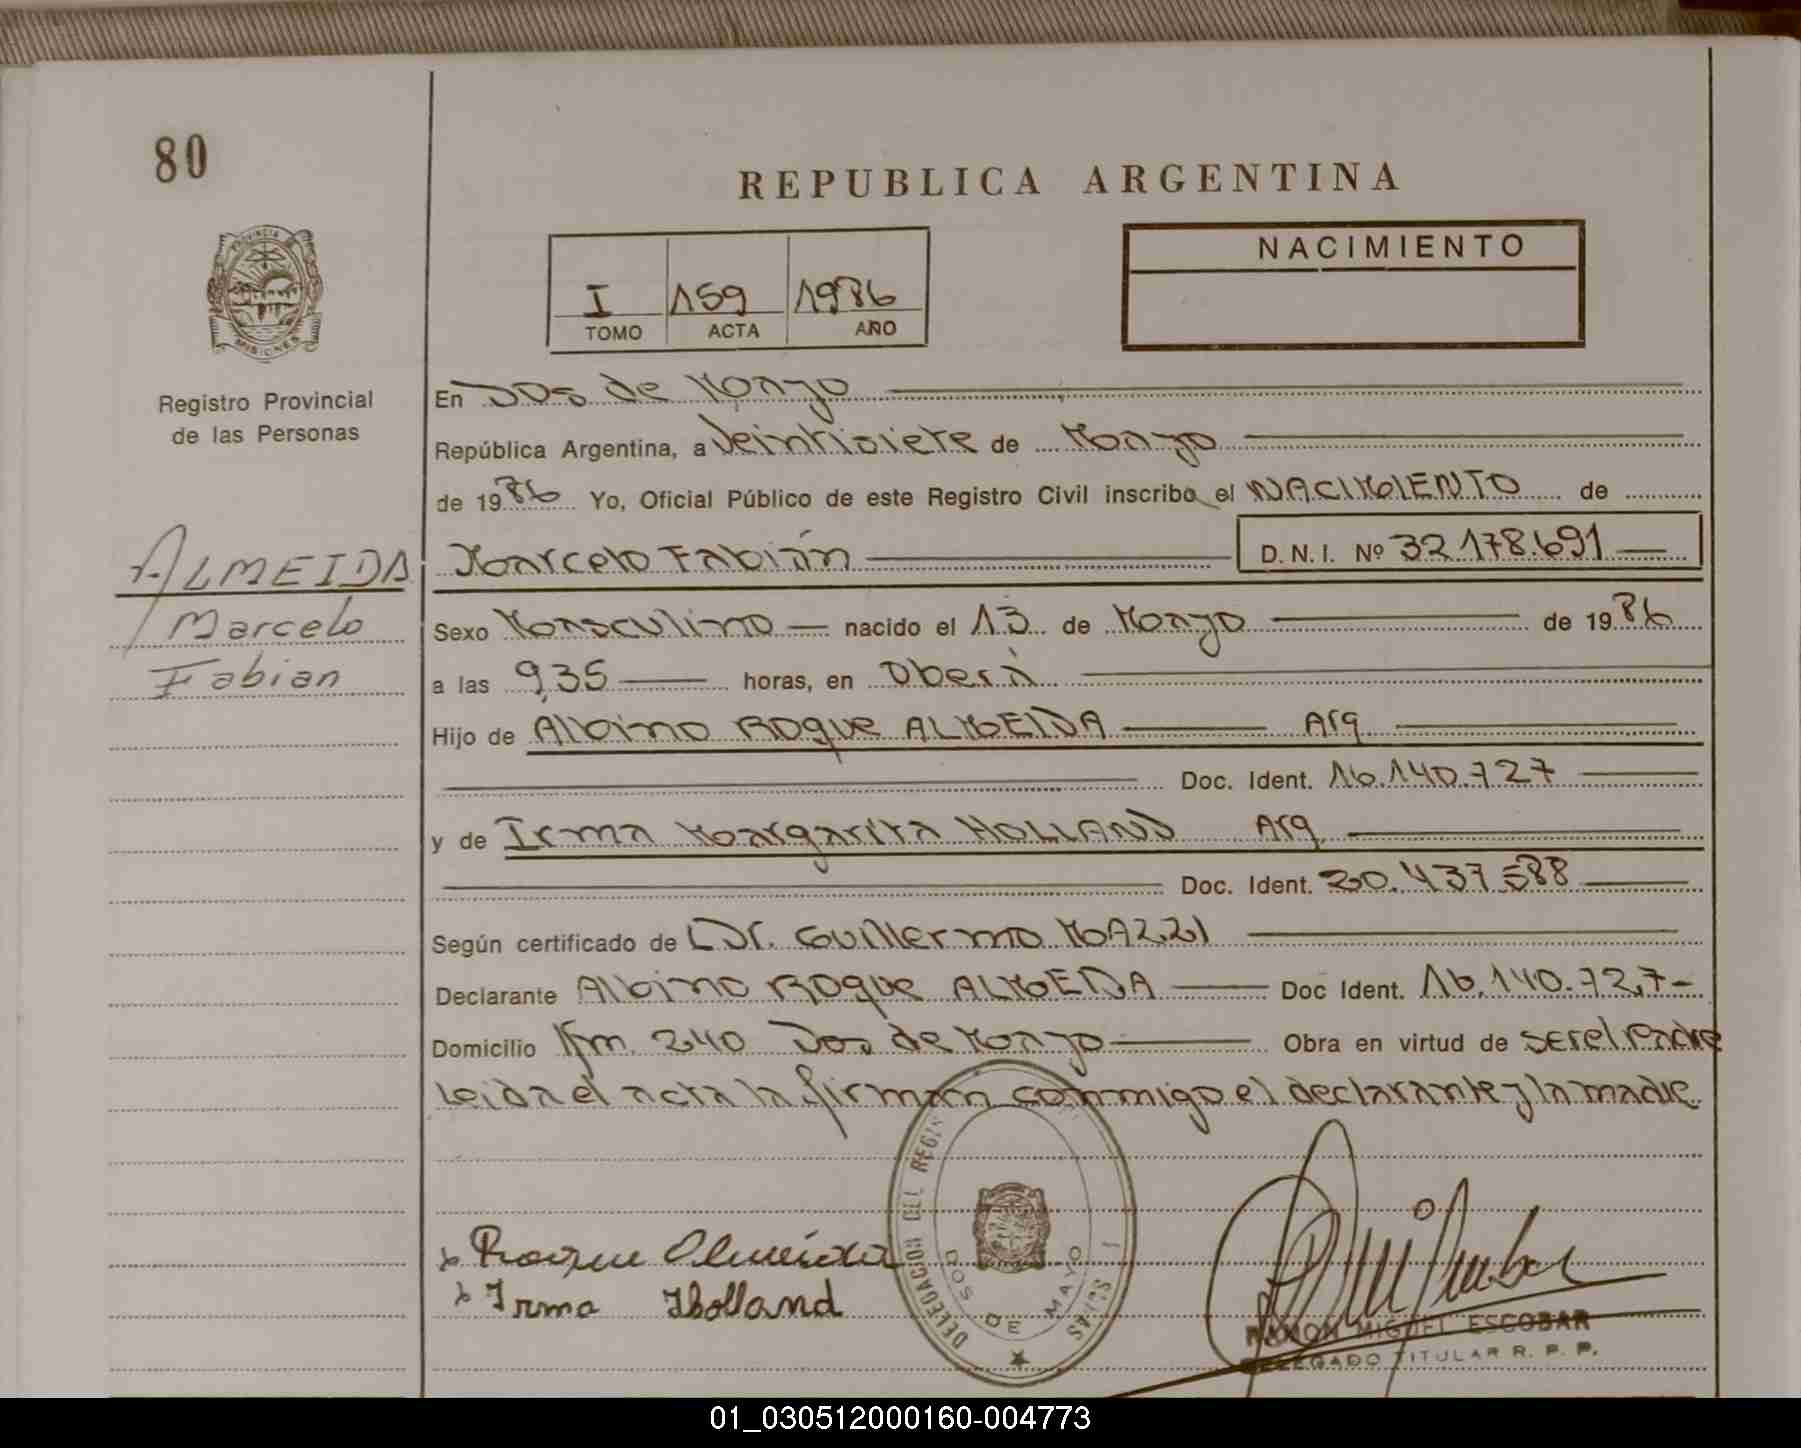 80
REPUBLICA ARGENTINA
PROVINCIA D
MISIONES
Registro Provincial
de las Personas
I 159 1986
TOMO ACTA AÑO
NACIMIENTO
En Dos de Mayo
República Argentina, a Veintisiete de Mayo
de 1986 Yo, Oficial Público de este Registro Civil inscribo el NACIMIENTO de
ALMEIDA
Marcelo
Fabian
Marcelo Fabián D.N.I. Nº 32.178.691
Sexo Masculino nacido el 13 de Mayo de 1986
a las 9,35 horas, en Oberá
Hijo de Albino Roque ALMEIDA Arg
Doc. Ident. 16.140.727
y de Irma Margarita HOLLAND Arg
Doc. Ident. 20.437.588
Según certificado de Dr. Guillermo MAZZI
Declarante Albino Roque ALMEIDA Doc Ident. 16.140.727-
Domicilio Km. 240 Dos de Mayo Obra en virtud de ser el Padre
Leida el acta la firman conmigo el declarante y la madre
Roque Almeida
Irma Holland
DELEGACION DEL REGI
DOS DE MAYO
RAMON MIGUEL ESCOBAR
DELEGADO TITULAR R. P. P.
01_030512000160-004773